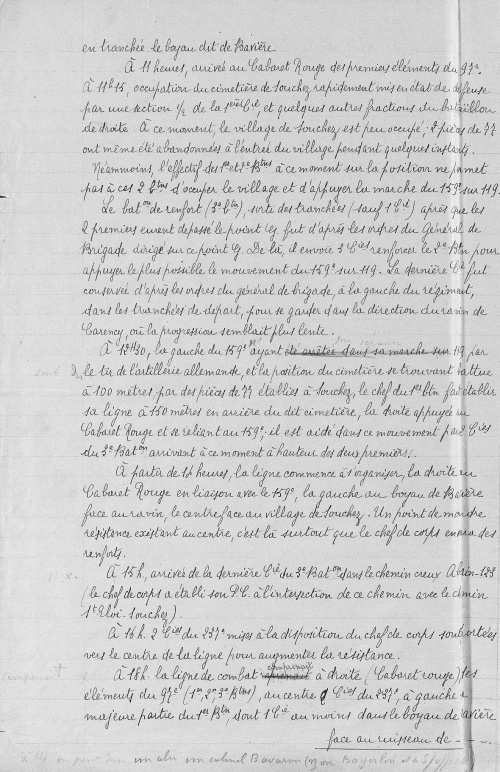 en tranchée le boyau dit de Bavière.
À 11 heures, arrivée au Cabaret Rouge des premiers éléments du 97e.
À 11h15, occupation du cimetière de Souchez rapidement mis en état de défense
par une section 1/2 de la Cie, et quelques autres fractions du bataillon
de droite. À ce moment, le village de Souchez est peu occupé; 2 pièces de 77
ont même été abandonnées à l'entrée du village pendant quelques instants.
Néammoins, l'effectif des 1er et 2e Btns à ce moment sur la position ne permet
pas à ces 2 Btns d'occuper le village et d'appuyer la marche du 159e sur 119.
Le baton de renfort (3e Btn), sorti des tranchées (sauf 1 Cie) après que les
2 premiers eurent dépassé le point G, fut d'après les ordres du Général de
Brigade dirigé sur ce point G. De là, il envoie 3 Cies renforcer le 2e Btn pour
appuyer le plus possible le mouvement du 159e sur 119. La dernière Cie fut
conservée d'après les ordres du général de brigade, à la gauche du régiment,
dans les tranchées de départ, pour se garder dans la direction du ravin de
Carency, où la progression semblait plus lente.
À 12h30, la gauche du 159e ayant été arrêtée dans sa marche sur 119 par
le tir de l'artillerie allemande, et la position du cimetière se trouvant battue
à 100 mètres par des pièces de 77 établies à Souchez, le chef du 1er btn fait établir
sa ligne à 150 mètres en arrière du dit cimetière, la droite appuyée au
Cabaret Rouge et se reliant au 159e; il est aidé dans ce mouvement par 2 Cies
du 3e Baton arrivant à ce moment à hauteur des deux premiers.
À partir de 14 heures, la ligne commence à s'organiser, la droite au
Cabaret Rouge en liaison avec le 159e, la gauche au boyau de Bavière
face au ravin, le centre face au village de Souchez. Un point de moindre
résistance existant au centre, c'est là surtout que le chef de corps enverra des
renforts.
À 15h, arrivée de la dernière Cie du 3e Baton dans le chemin creux Ablain-123
(le chef de corps a établi son P.C. à l'intersection de ce chemin avec le chemin
St Eloi-Souchez).
À 16h. 2 Cies du 237e mises à la disposition du chef de corps sont portées
vers le centre de la ligne pour augmenter la résistance.
À 18h. la ligne de combat comprenait à droite (Cabaret rouge), des
éléments du 97e (1er, 2e, 3e Btns), au centre Cies du 237e, à gauche
majeure partie du 1er Btn, dont 1 Cie au moins dans le boyau de Bavière
face au ruisseau de